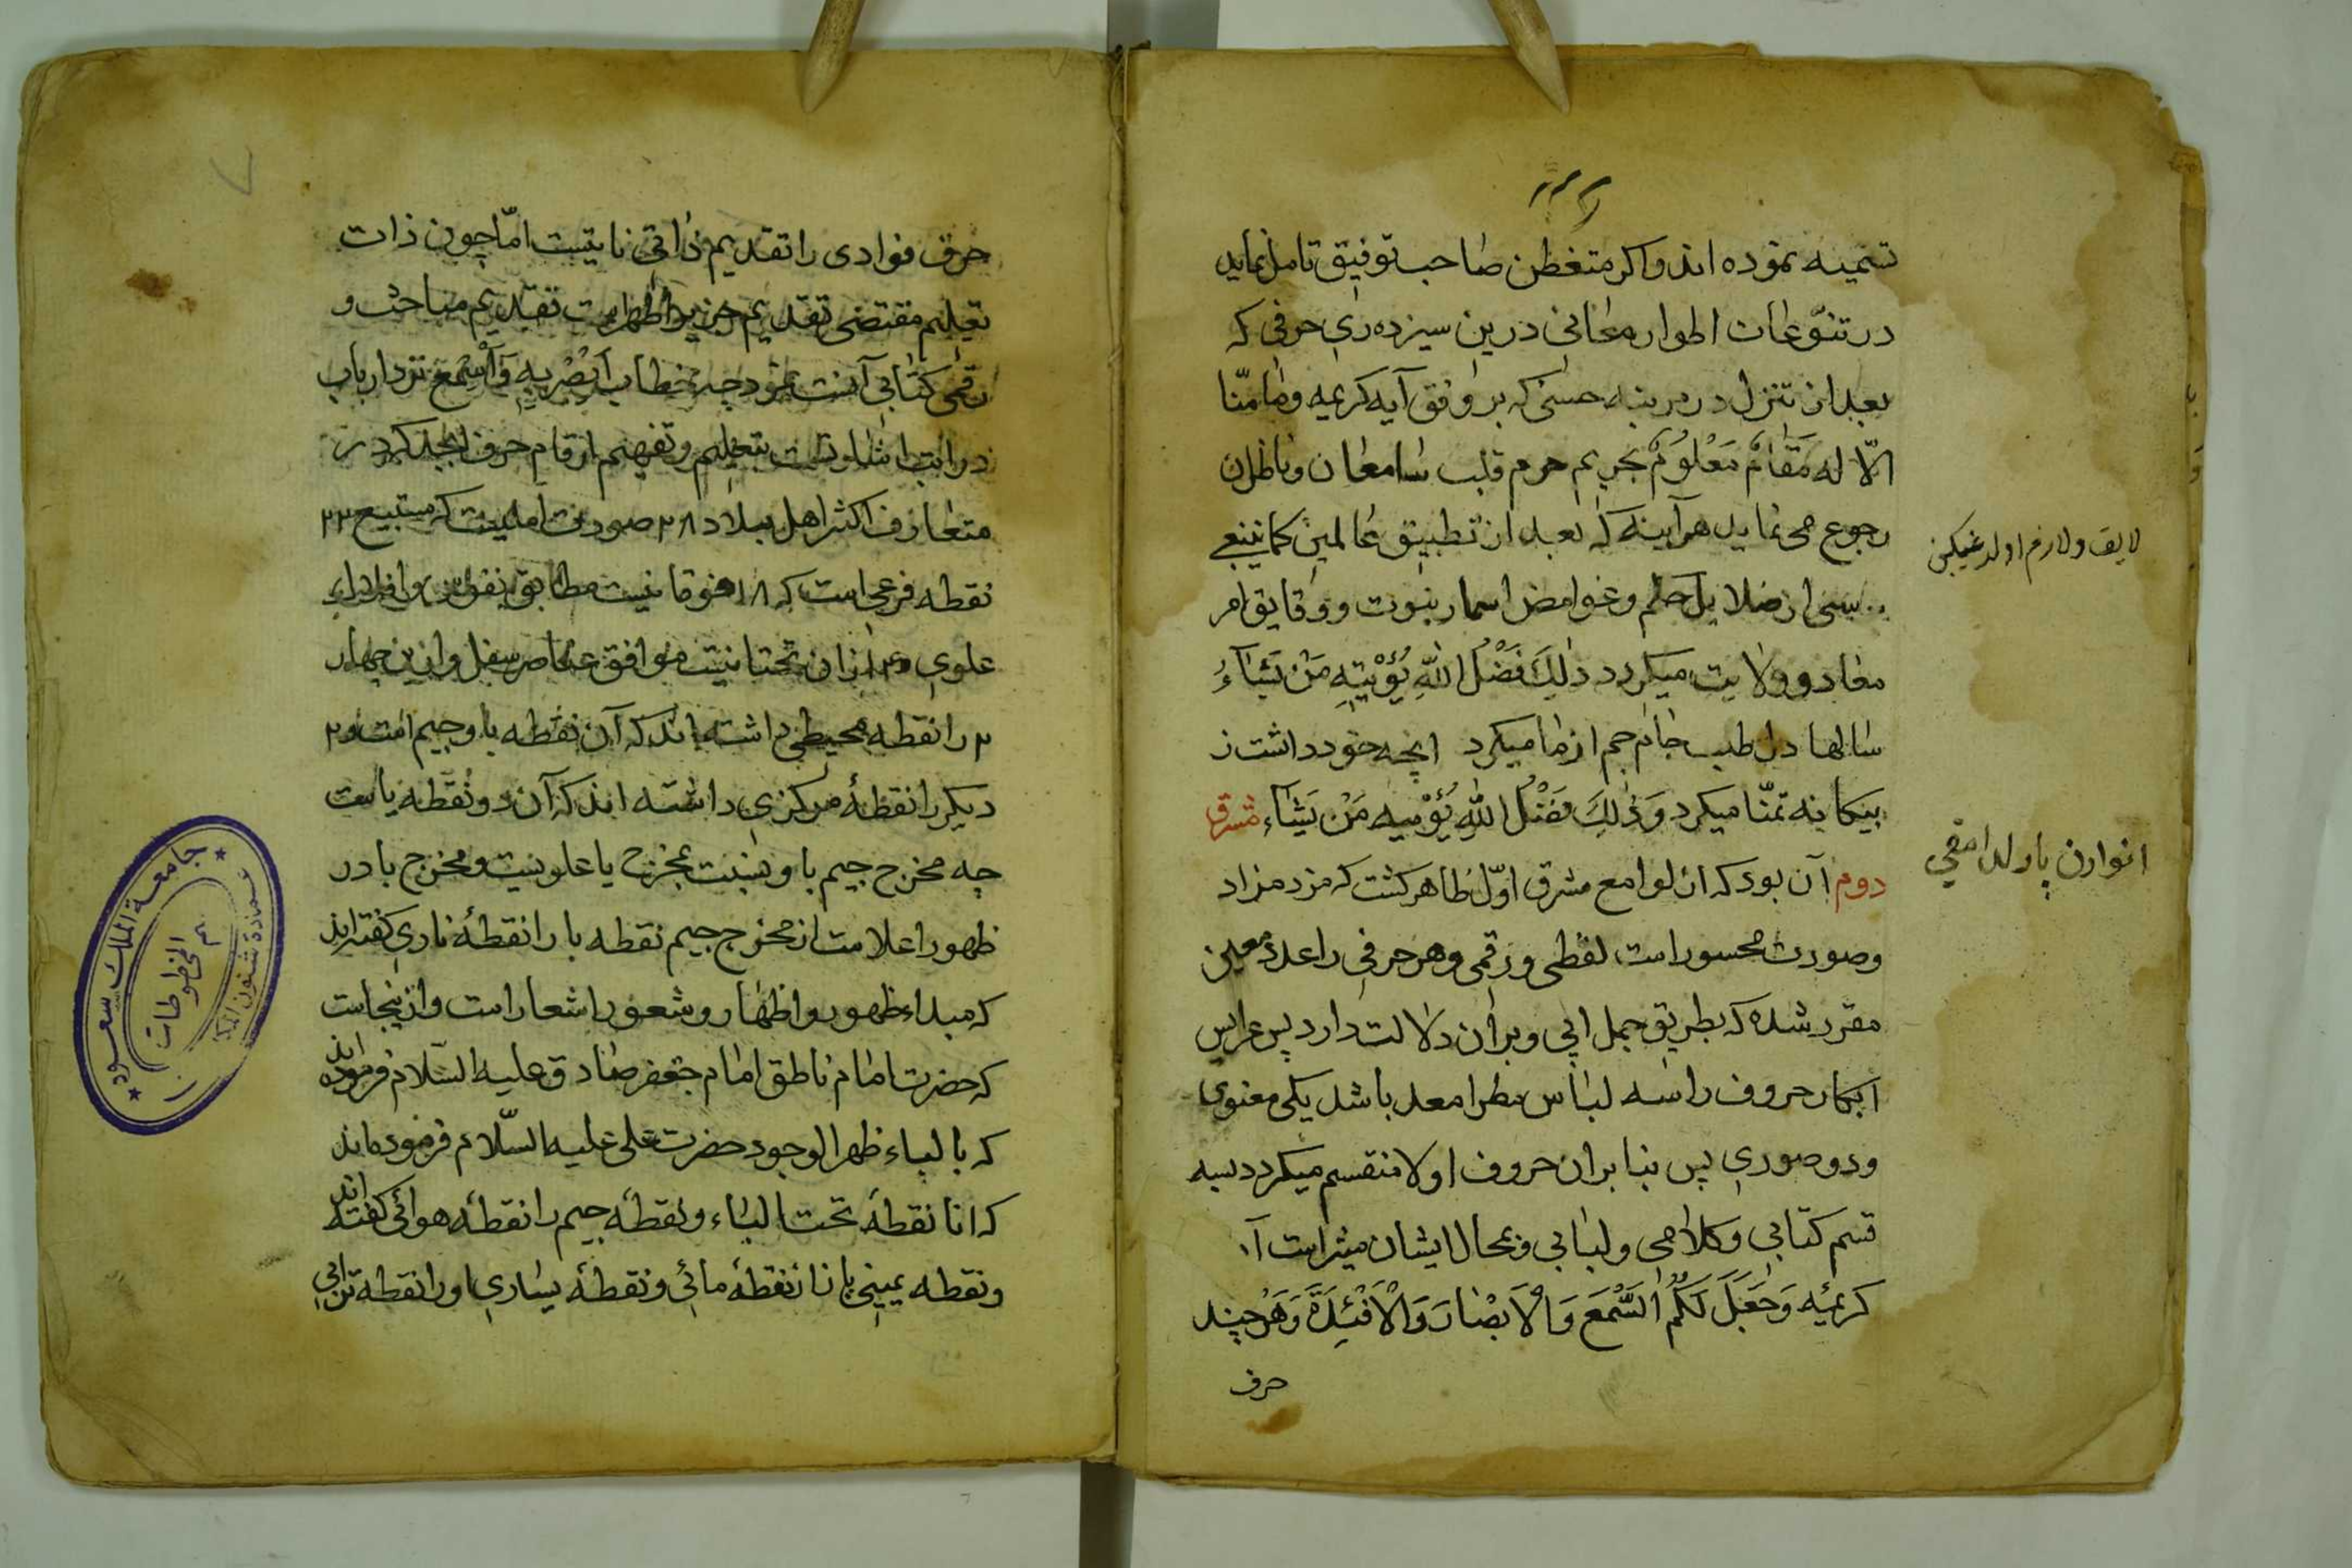 تسمیه نموده اند واکر متفطن صاحب توفیق تامل نماید
در تنوعات اطوار معانی درین سیزده ری حرفی که
بعد از تنزل در مرتبه حسی که بر وفق آیه کریمه وما منّا
الّا له مَقَامٌ مَعْلُومٌ بحریم حرم قلب سامعان وناظران
رجوع می نماید هر آینه که بعد از تطبیق عالمین کما ینبغی
بسی از حکم وغوامض اسرار نبوت ودقایق امر
معاد وولایت میکردد ذٰلِكَ فَضْلُ اللّٰهِ يُؤْتِيهِ مَنْ يَشَآءُ
سالها دل طلب جام جم از ما میکرد انچه خود داشت ز
بیکانه تمنّا میکرد وَذٰلِكَ فَضْلُ اللّٰهِ يُؤْتِيه مَنْ يَشَاء مشرق
دوم آن بود که از لوامع مشرق اوّل ظاهر کشت که مزد مزاد
وصورت محسوراست لفظی ورقمی وهر حرفی را عددی معین
مقرر شده که بطریق جمل ابی وبران دلالت دارد پس عرایس
ابکار حروف را سه لباس مطرا معد باشد یکی معنوی
ودو صوری پس بنا بران حروف اولا منقسم میکردد بسه
قسم کتابی وکلامی ولبابی وبحال ایشان مشیر است آ
کریمه وَجَعَلَ لَكُمُ السَّمْعَ وَالْاَبْصَارَ وَالْاَفْئِدَةَ وَهَرْ چند
حرف
لایق ولازم اولد غیکبن
انوارن پاره لدامقی
حرف فوادی را تقدیم ذاتی ثابتست امّا چون ذات
تعلیم مقتضی تقدیم تقدیم مباحث و
رقمی کتابی آنست نمود چه خطاب اَبْصِرْ بِهِ وَاَسْمِعْ نزد ارباب
درایت اشارتست بتعلیم وتفهیم ارقام حرف ابجد که در
متعارف اکثر اهل بلاد ۲۸ صورت اصلیت که مستتبع ۲۲
نقطه فرعی است که ۱۸ فوقانیست مطابق
علوی و۴ ازان تحتانیست موافق عناصر سفلی وازین چهار
۲ را نقطه محیطی داشته اند که آن نقطه با وجیم است و۲
دیکر را نقطهٔ مرکزی داشته اند که آن دو نقطه یاست
چه مخرج جیم با ونسبت بمخرج یا علویست ومخرج با در
ظهور اعلامت از مخرج جیم نقطه با را نقطهٔ ناری کفته اند
که مبداء ظهور واظهار وشعور اشعار است وازینجاست
که حضرت امام ناطق امام جعفر صادق علیه السّلام فرموده اند
که بالباء ظهر الوجود حضرت علی علیه السّلام فرموده اند
که انا نقطهٔ تحت الباء ونقطهٔ جیم را نقطهٔ هوائی کفته اند
ونقطه یمینی یا را نقطهٔ مائی ونقطهٔ یساری او را نقطه ترابی
جامعة الملك سعود
عمادة شئون المكتبات
المخطوطات